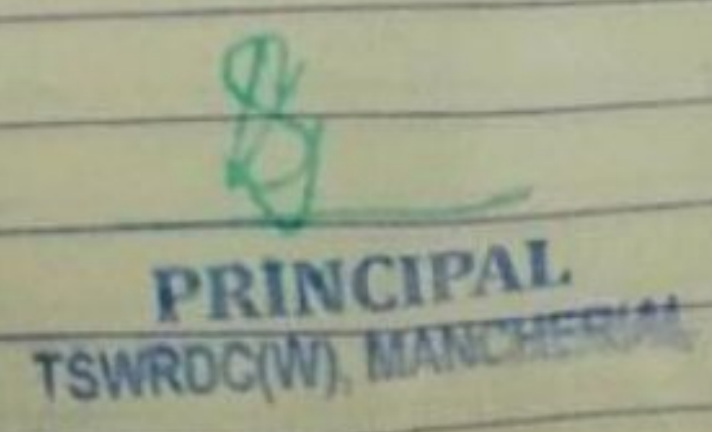 PRINCIPAL
TSWRDC(W), MANCHERIAL